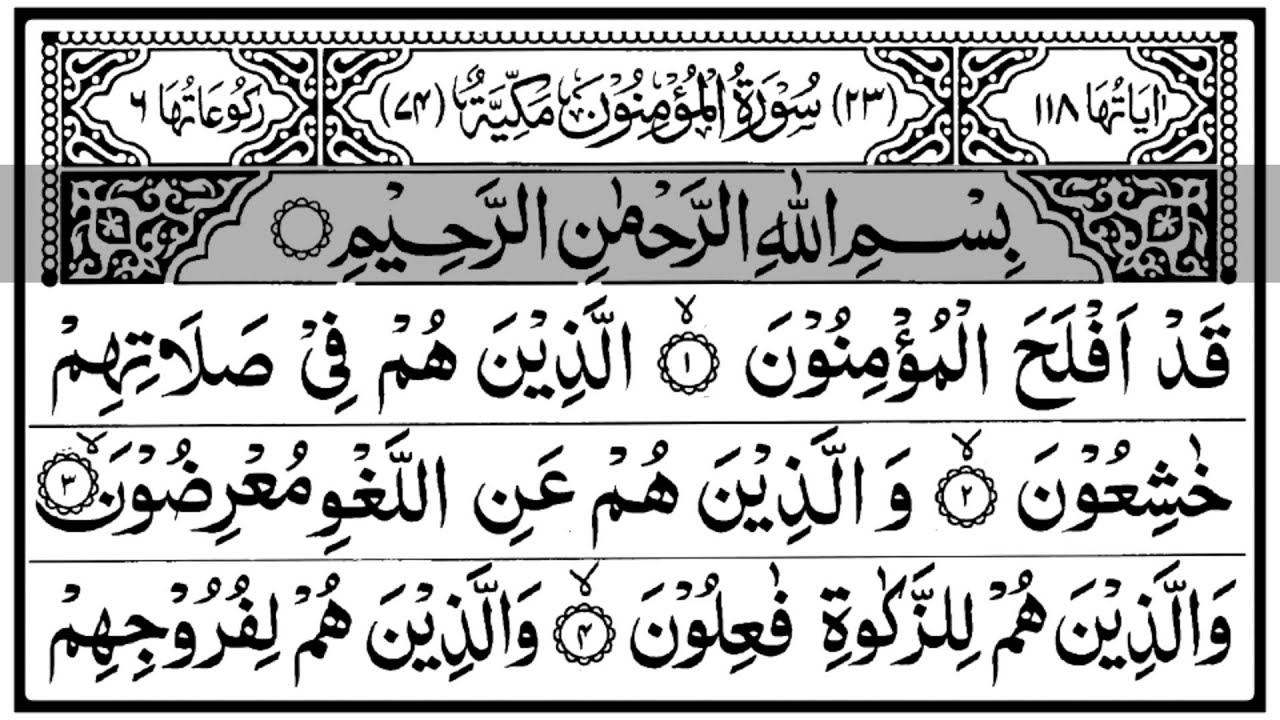 اٰيَاتُهَا ١١٨ (٢٣) سُوْرَةُ الْمُؤْمِنُوْنَ مَكِّيَّةٌ (٧٤) رُكُوْعَاتُهَا ٦
بِسْمِ اللّٰهِ الرَّحْمٰنِ الرَّحِيْمِ
قَدْ اَفْلَحَ الْمُؤْمِنُوْنَ ۙ ١ الَّذِيْنَ هُمْ فِيْ صَلَاتِهِمْ
خٰشِعُوْنَ ۙ ٢ وَ الَّذِيْنَ هُمْ عَنِ اللَّغْوِ مُعْرِضُوْنَ ۙ ٣
وَالَّذِيْنَ هُمْ لِلزَّكٰوةِ فٰعِلُوْنَ ۙ ٤ وَالَّذِيْنَ هُمْ لِفُرُوْجِهِمْ